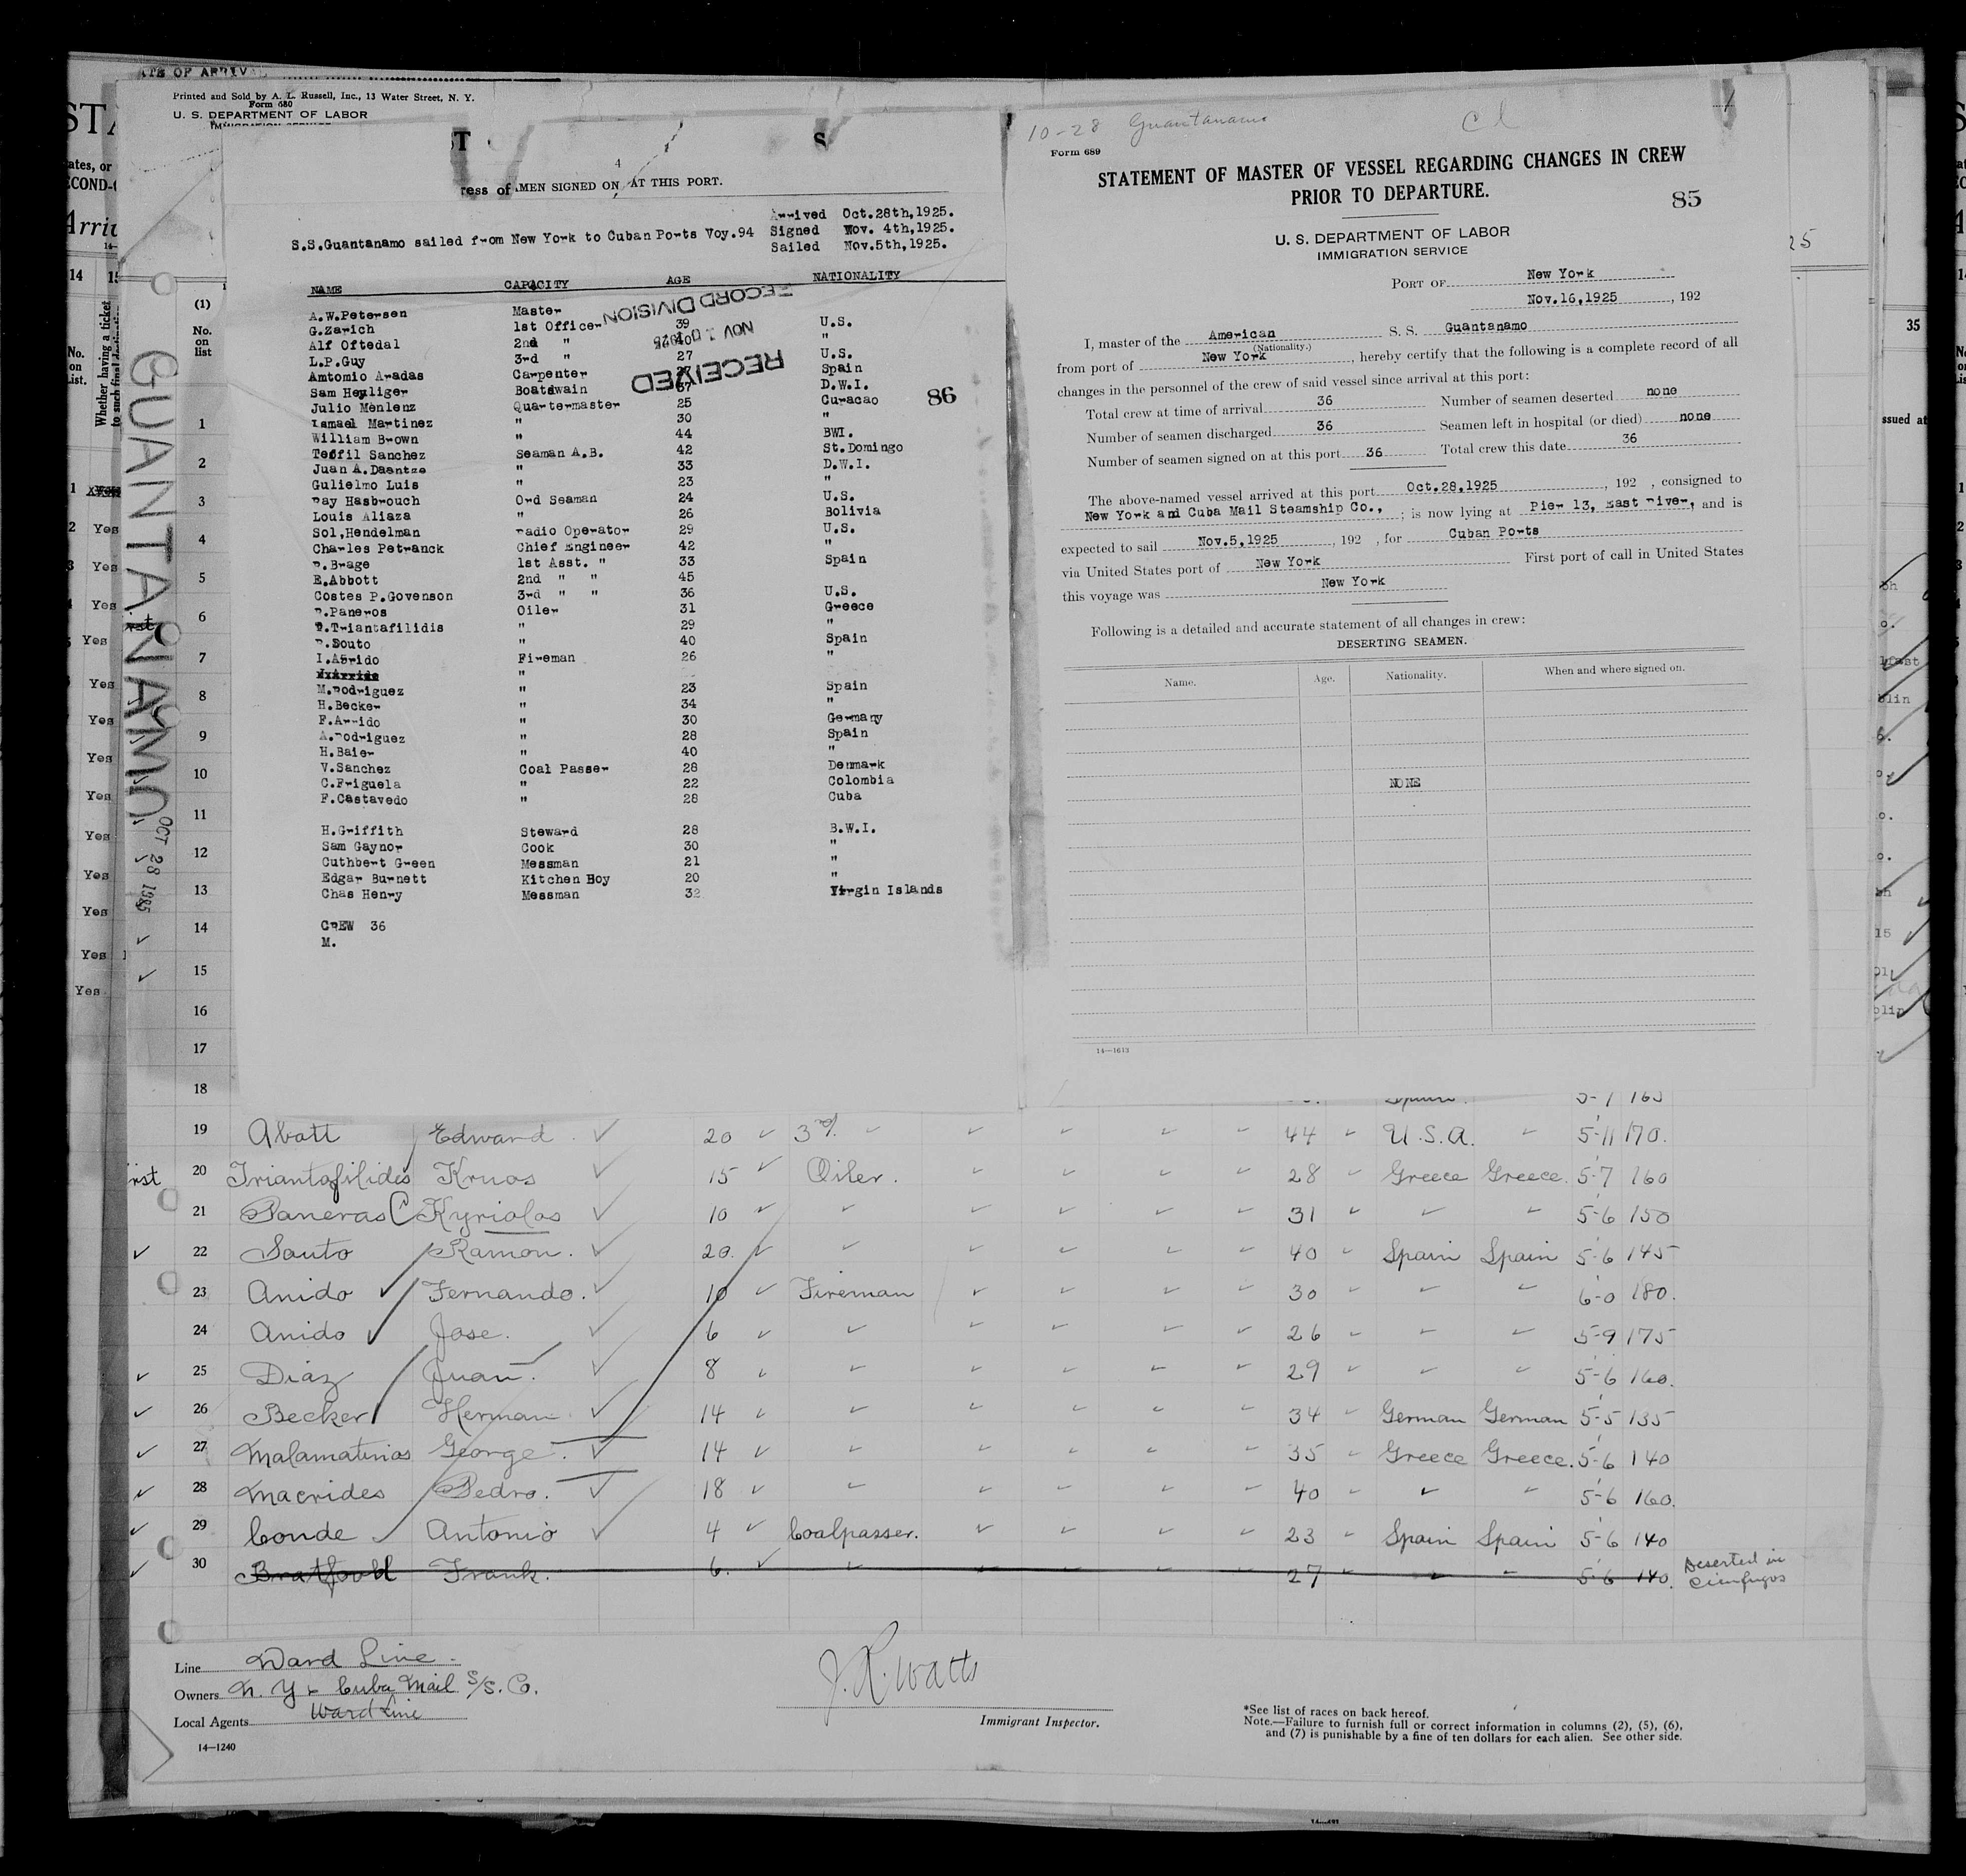 ATE OF ARRIVAL
Printed and Sold by A. L. Russell, Inc., 13 Water Street, N. Y.
Form 680
U. S. DEPARTMENT OF LABOR
IMMIGRATION SERVICE
ress of
AMEN SIGNED ON AT THIS PORT.
Arrived Oct.28th,1925.
S.S.Guantanamo sailed from New York to Cuban Ports Voy.94 Signed Nov. 4th,1925.
Sailed Nov.5th,1925.
NAME CAPACITY AGE NATIONALITY
A.W.Petersen Master
G.Zarich 1st Officer 39 U.S.
Alf Oftedal 2nd " 40 "
L.P.Guy 3rd " 27 U.S.
Amtomio Aradas Carpenter Spain
Sam Heyliger Boatswain 37 D.W.I.
Julio Menlenz Quartermaster 25 Curacao
Ismael Martinez " 30 "
William Brown " 44 BWI.
Teofil Sanchez Seaman A.B. 42 St.Domingo
Juan A.Daentze " 33 D.W.I.
Gulielmo Luis " 23 "
Ray Hasbrouch Ord Seaman 24 U.S.
Louis Aliaza " 26 Bolivia
Sol,Hendelman Radio Operator 29 U.S.
Charles Petranck Chief Engineer 42 "
R.Brage 1st Asst. " 33 Spain
E.Abbott 2nd " " 45
Costes P.Govenson 3rd " " 36 U.S.
P.Paneros Oiler 31 Greece
P.Triantafilidis " 29 "
R.Souto " 40 Spain
I.Abrido Fireman 26 "
"
M.Rodriguez " 23 Spain
H.Becker " 34 "
F.Arrido " 30 Germany
A.Rodriguez " 28 Spain
H.Baier " 40 "
V.Sanchez Coal Passer 28 Denmark
C.Friguela " 22 Colombia
F.Castavedo " 28 Cuba
H.Griffith Steward 28 B.W.I.
Sam Gaynor Cook 30 "
Cuthbert Green Messman 21 "
Edgar Burnett Kitchen Boy 20 "
Chas Henry Messman 32 Virgin Islands
CREW 36
M.
RECORD DIVISION
NOV 10 1925
RECEIVED
86
GUANTANAMO
OCT 28 1925
10-28 Guantanamo Cl
Form 689
STATEMENT OF MASTER OF VESSEL REGARDING CHANGES IN CREW
PRIOR TO DEPARTURE.
85
U. S. DEPARTMENT OF LABOR
IMMIGRATION SERVICE
PORT OF New York
Nov.16,1925, 192
I, master of the American S. S. Guantanamo
(Nationality.)
from port of New York, hereby certify that the following is a complete record of all
changes in the personnel of the crew of said vessel since arrival at this port:
Total crew at time of arrival 36 Number of seamen deserted none
Number of seamen discharged 36 Seamen left in hospital (or died) none
Number of seamen signed on at this port 36 Total crew this date 36
The above-named vessel arrived at this port Oct.28,1925, 192 , consigned to
New York and Cuba Mail Steamship Co., ; is now lying at Pier 13, East River, and is
expected to sail Nov.5,1925, 192 , for Cuban Ports
via United States port of New York First port of call in United States
this voyage was New York
Following is a detailed and accurate statement of all changes in crew:
DESERTING SEAMEN.
Name. Age. Nationality. When and where signed on.
NONE
14—1613
(1)
No.
on
list
1
2
3
4
5
6
7
8
9
10
11
12
13
14
15
16
17
18
19 Abatt Edward 20 3rd. 44 U.S.A. 5-11 170.
20 Triantafilides Kruos 15 Oiler. 28 Greece Greece. 5-7 160
21 Paneras C Kyriolos 10 31 5-6 150
22 Santo Ramon. 20. 40 Spain Spain 5-6 145
23 Anido Fernando. 10 Fireman 30 6-0 180.
24 Anido Jose. 6 26 5-9 175
25 Diaz Juan. 8 29 5-6 160.
26 Becker Herman 14 34 German German 5-5 135
27 Malamatinas George. 14 35 Greece Greece. 5-6 140
28 Macrides Pedro. 18 40 5-6 160.
29 Conde Antonio 4 Coalpasser. 23 Spain Spain 5-6 140
30 Frank. 6. 27 5-6 140. Deserted in
Cienfugos
Line Ward Line.
Owners N. Y & Cuba Mail S/S. Co.
Local Agents Ward Line
14—1240
J. R. Watts
Immigrant Inspector.
*See list of races on back hereof.
Note.—Failure to furnish full or correct information in columns (2), (5), (6),
and (7) is punishable by a fine of ten dollars for each alien. See other side.